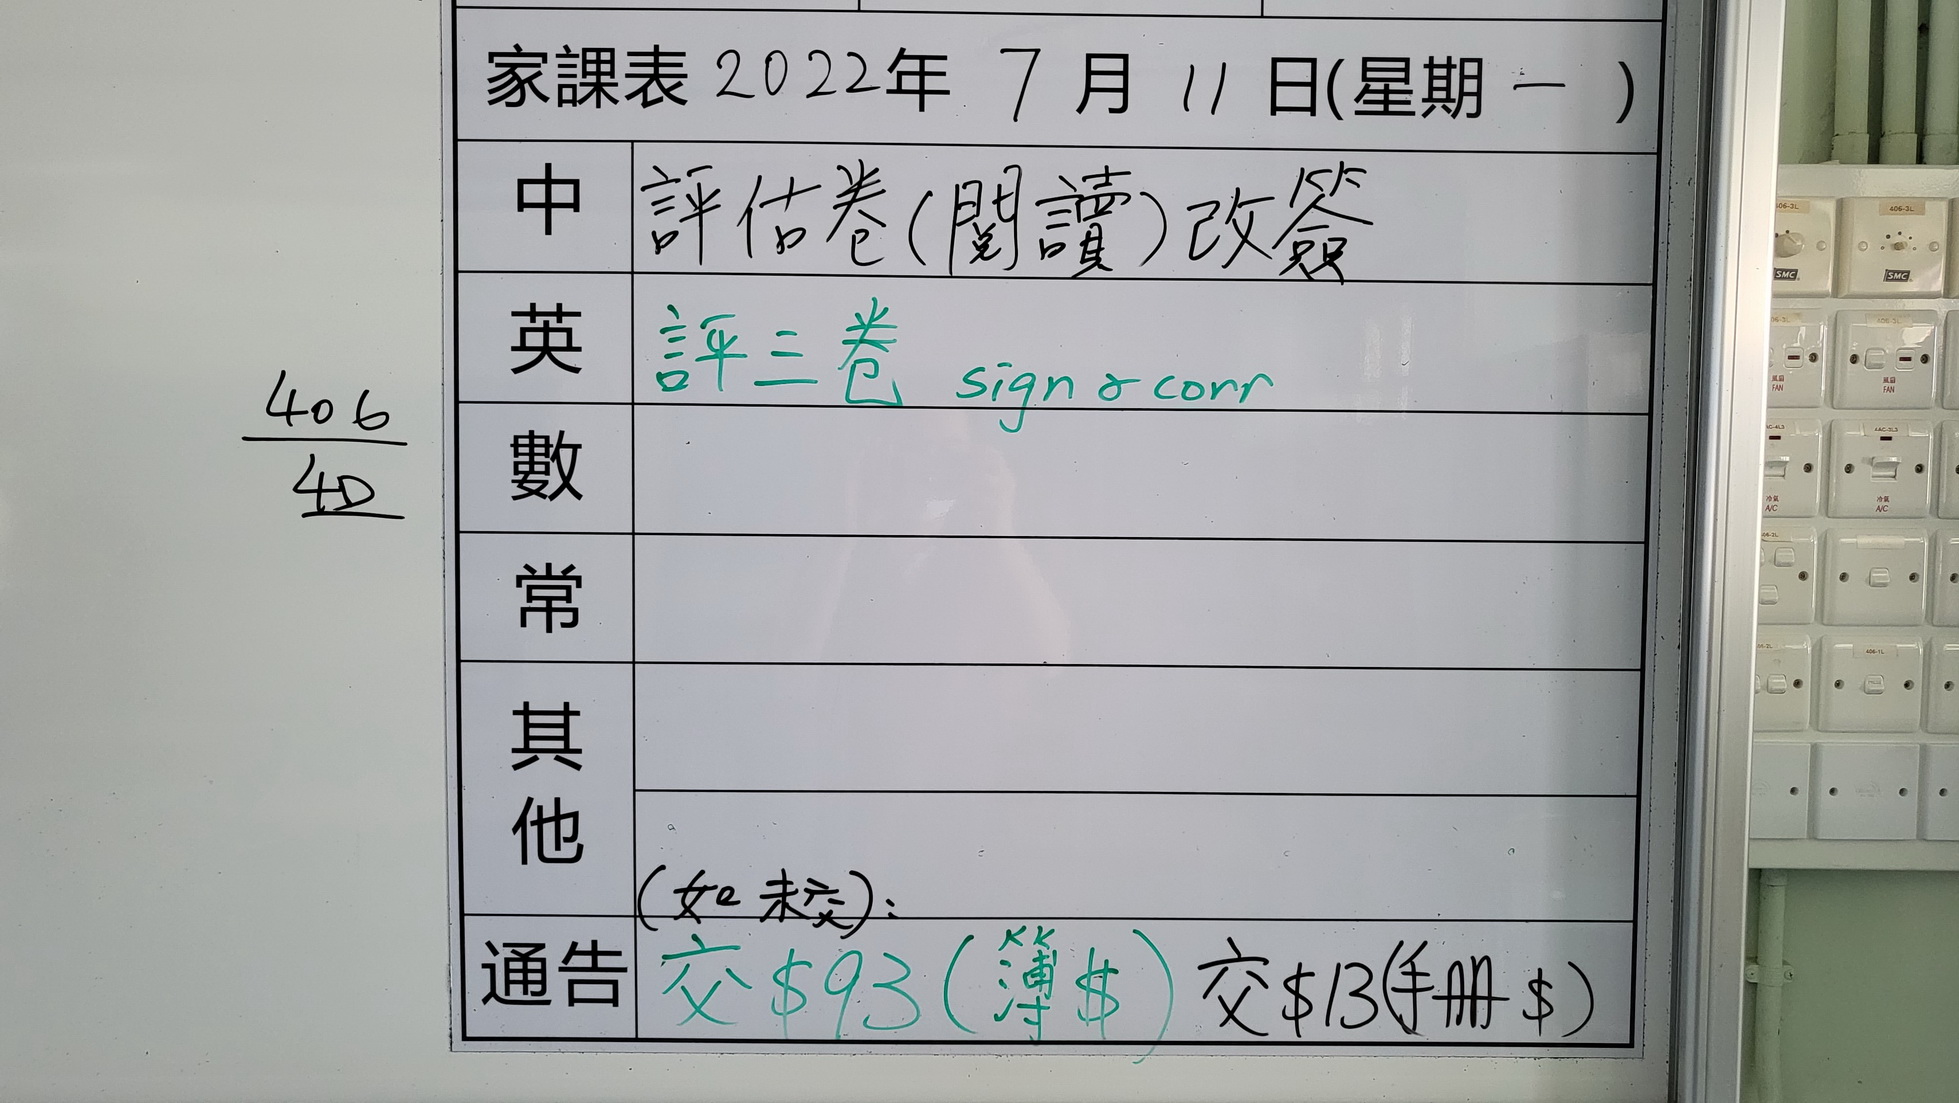 家課表 2022年 7 月 11 日(星期 一 )
中 評估卷(閱讀)改簽
英 評三卷 sign & corr
數
常
其他
(如未交):
通告 交$93(簿$) 交$13(手冊$)
406
4D
406-3L
406-3L
SMC
SMC
風扇
FAN
風扇
FAN
冷氣
A/C
冷氣
A/C
406-1L